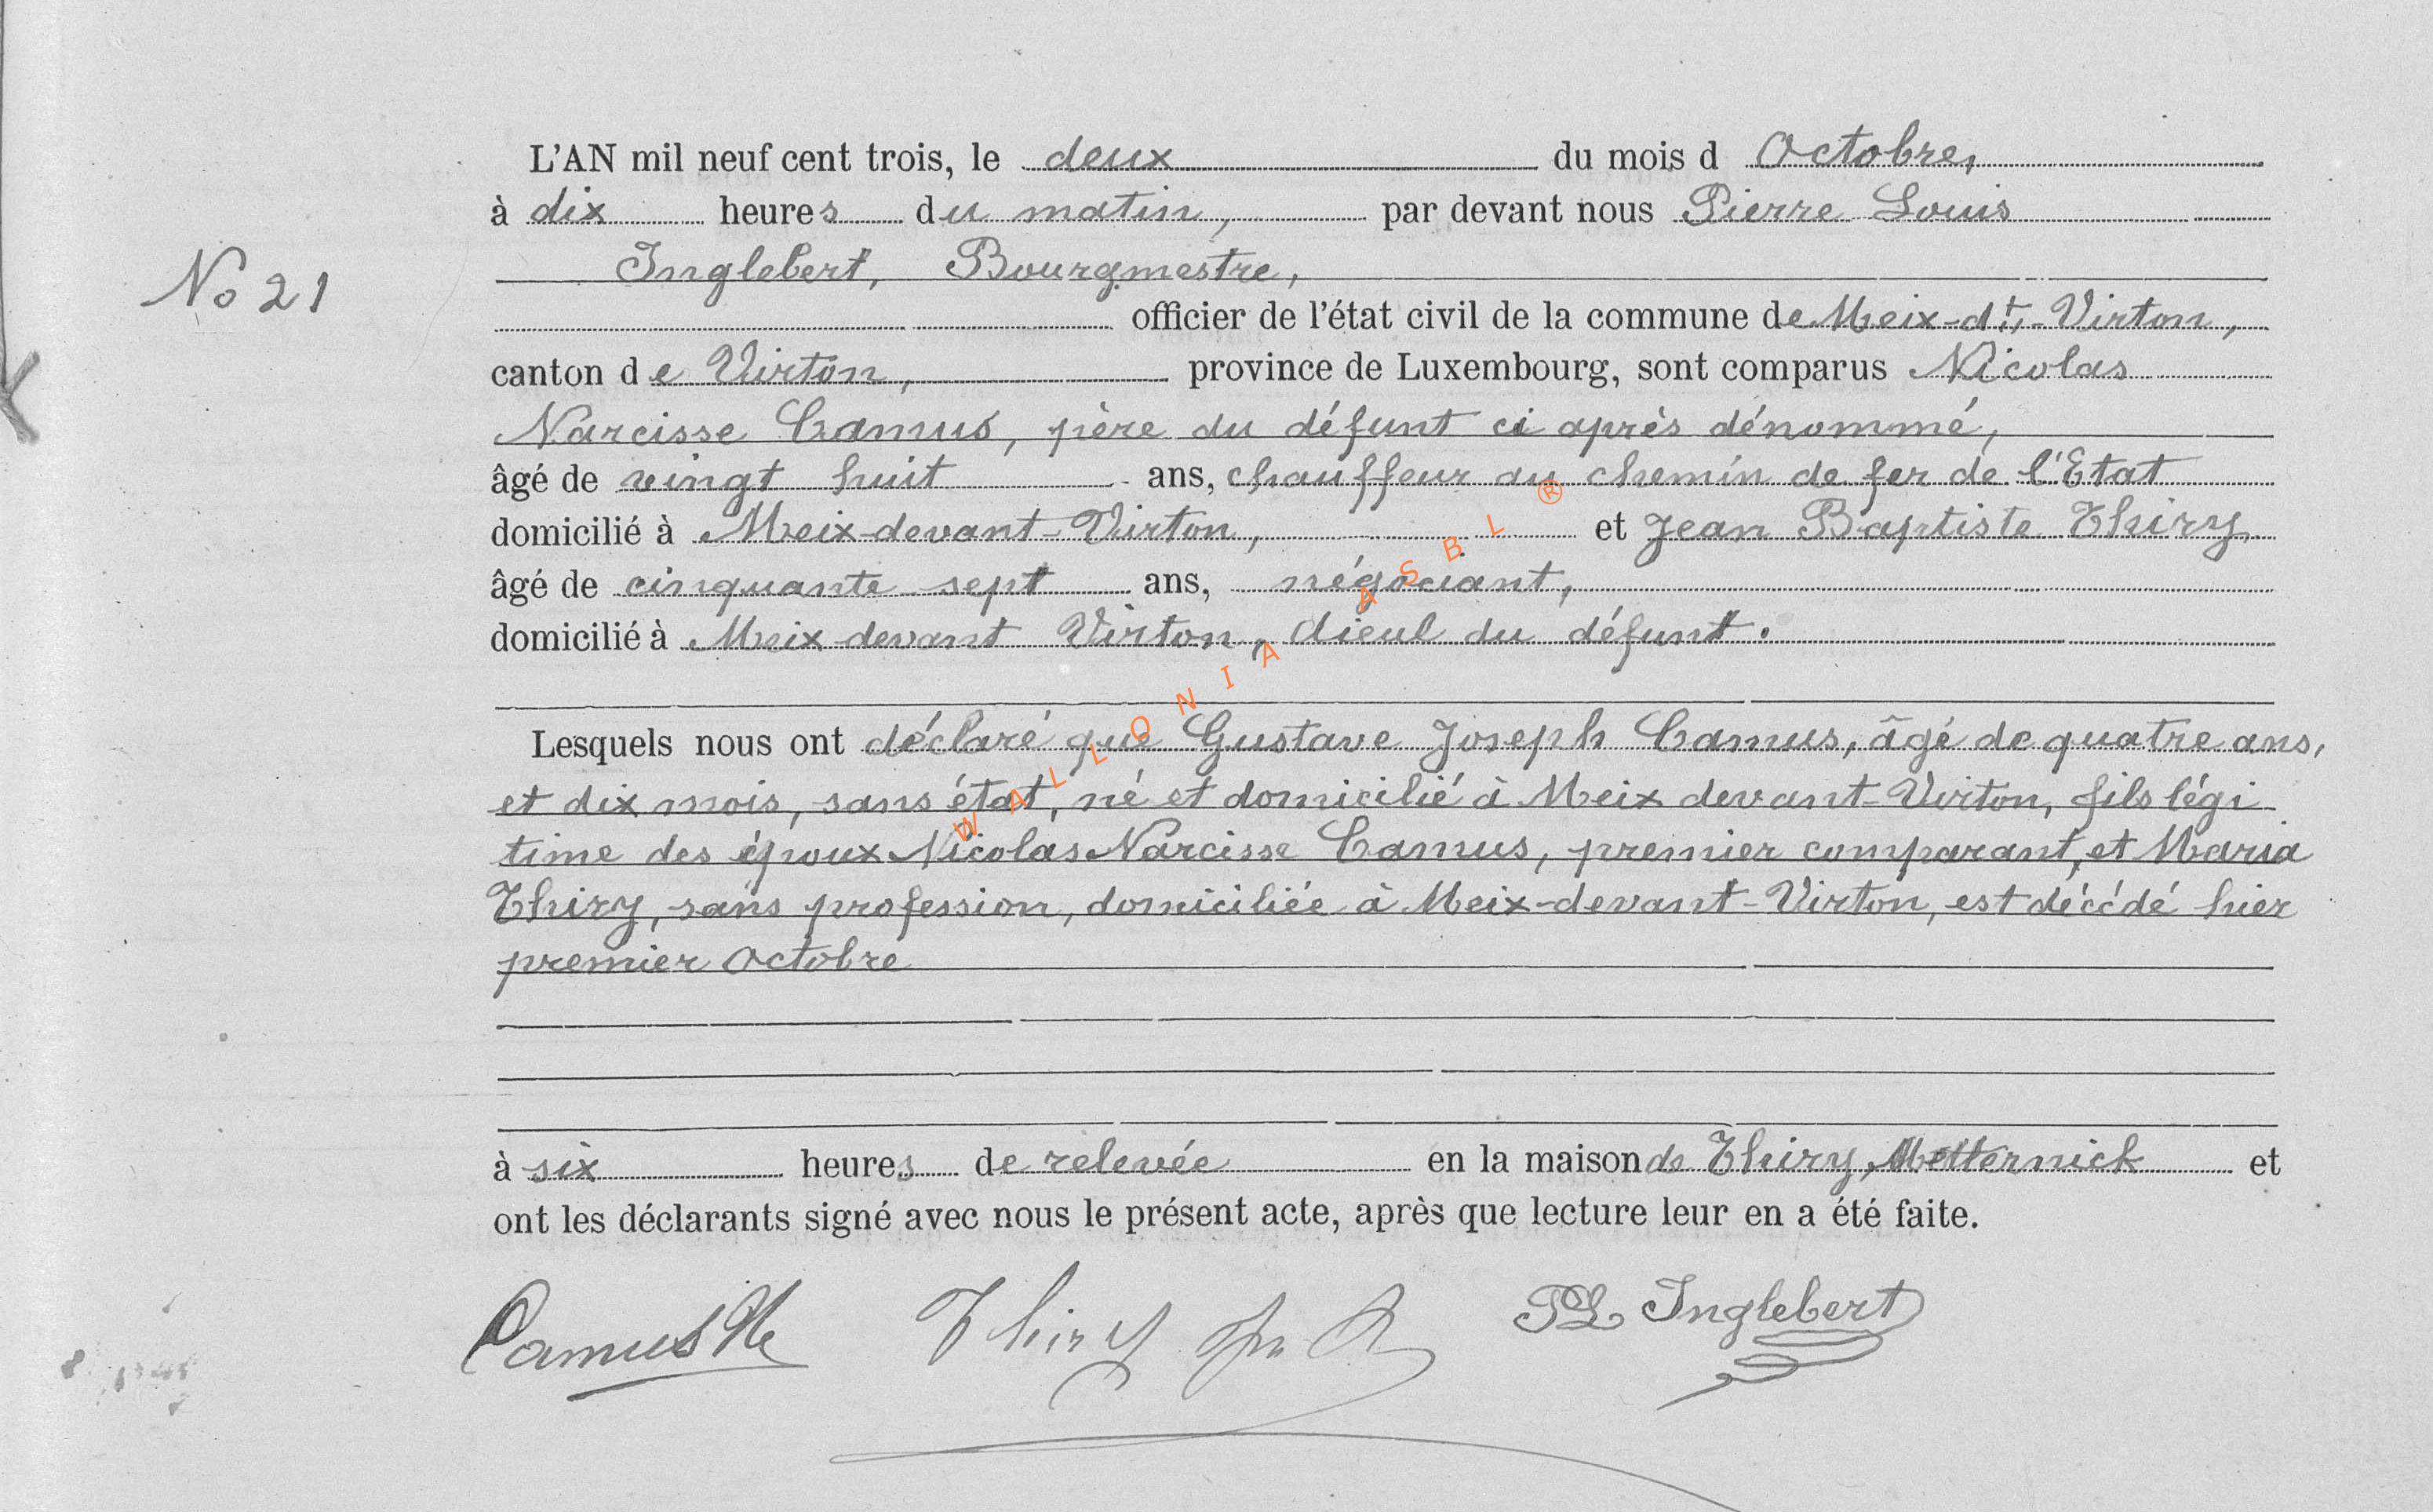 L'AN mil neuf cent trois, le deux du mois d Octobre,
à dix heures du matin, par devant nous Pierre Louis
Inglebert, Bourgmestre,
No 21
officier de l'état civil de la commune de Meix-dt-Virton,
canton de Virton, province de Luxembourg, sont comparus Nicolas
Narcisse Camus, père du défunt ci après dénommé,
âgé de vingt huit ans, chauffeur au chemin de fer de l'Etat
domicilié à Meix-devant-Virton, et Jean Baptiste Thiry
âgé de cinquante sept ans, négociant,
domicilié à Meix devant Virton, aïeul du défunt.
Lesquels nous ont déclaré que Gustave Joseph Camus, âgé de quatre ans,
et dix mois, sans état, né et domicilié à Meix devant-Virton, fils légi-
time des époux Nicolas Narcisse Camus, premier comparant, et Maria
Thiry, sans profession, domiciliée à Meix-devant-Virton, est décédé hier
premier Octobre
à six heures de relevée en la maison de Thiry, Metternick et
ont les déclarants signé avec nous le présent acte, après que lecture leur en a été faite.
Camus Thiry PL Inglebert
WALLONIA ASBL ®